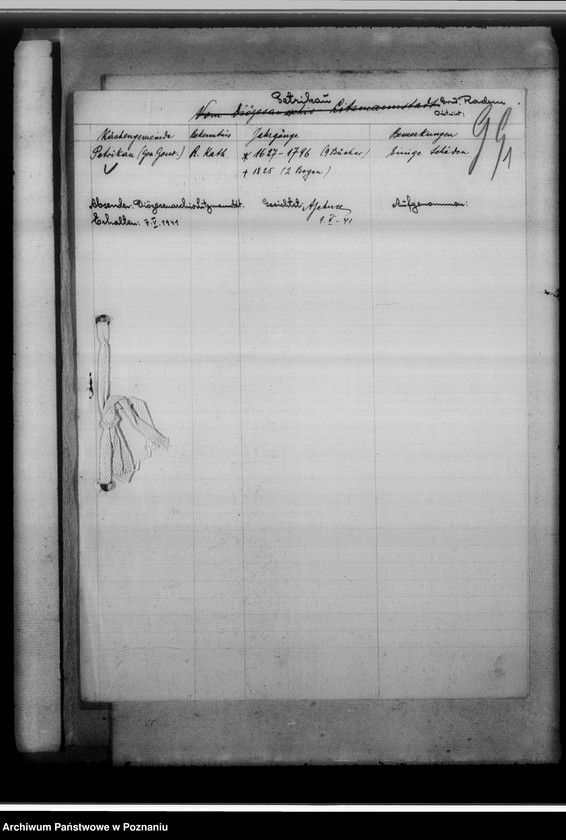 Petrikau Distr. Radom.
Vom Diözesanarchiv Litzmannstadt
Distrikt:
99/1
Kirchengemeinde Bekenntnis Jahrgänge Bemerkungen
Petrikau (Gen Gouv.) R. Kath. * 1627-1796 (9 Bücher) Einige Schäden
+ 1825 (2 Bogen)
Absender: Diözesanarchiv Litzmannstdt. Gesichtet, Aufgenommen:
Erhalten: 7.V.1941 9. V - 41
Archiwum Państwowe w Poznaniu